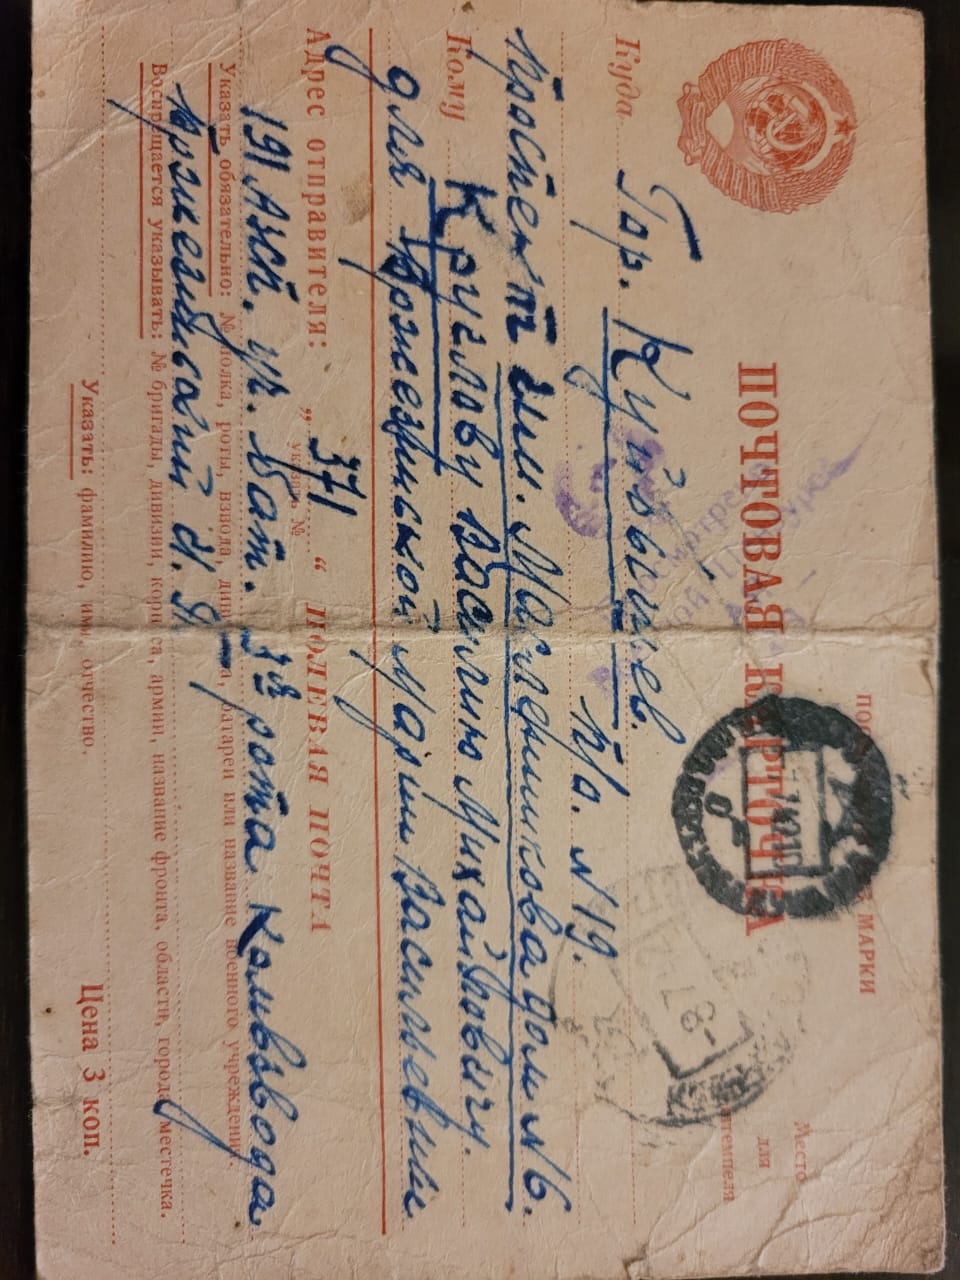 ПОЧТОВАЯ КАРТОЧКА
МАРКИ
Место
для
Просмотрено
Куда Гор. Куйбышев.
п/о. N 19.
проспект им. Масленникова дом N 6.
Кому Круглову Василию Михайловичу.
для Бржезинской Марии Васильевне
Адрес отправителя: „ 371 “ ПОЛЕВАЯ ПОЧТА
указать №
191 Азсп. ул. бат. 3я рота Комвзвода
Указать обязательно: № полка, роты, взвода, батареи или название военного учреждения.
Воспрещается указывать: № бригады, дивизии, корпуса, армии, название фронта, области, города, местечка.
Указать: фамилию, имя, отчество.
Цена 3 коп.